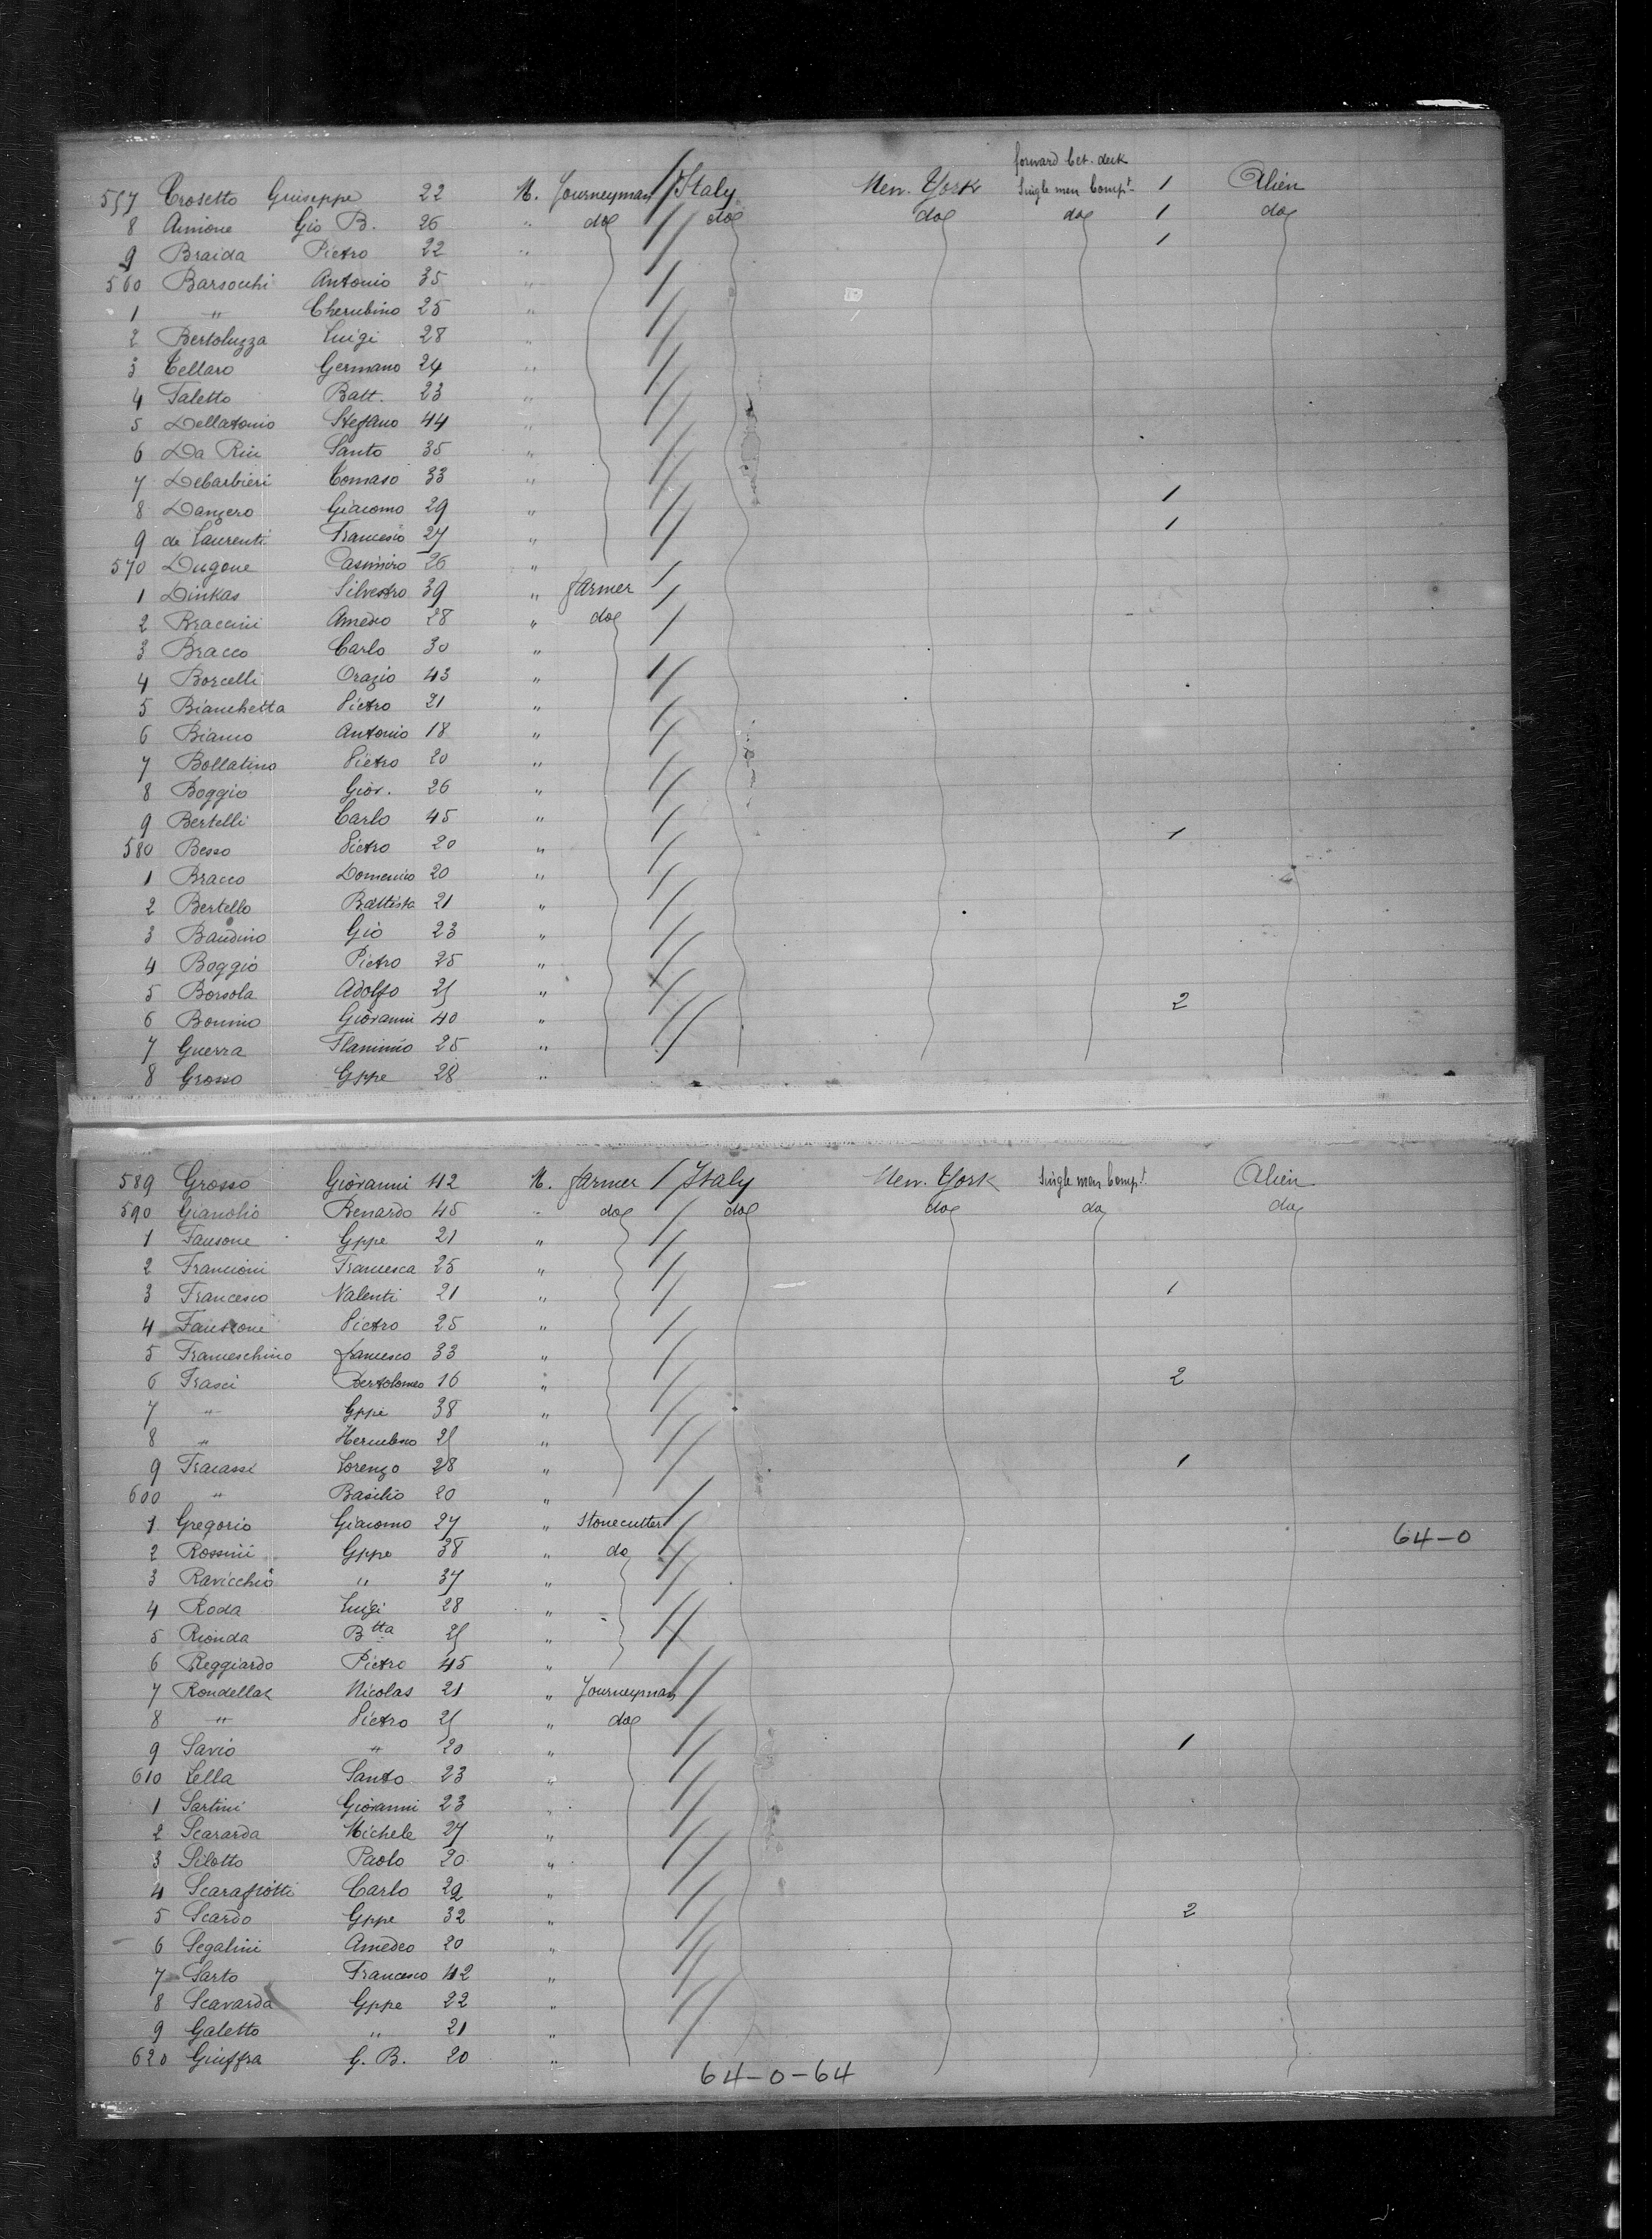 forward bet. deck
557 Crosetto Giuseppe 22 M. Journeyman / Italy New. York Single men Compt. 1 Alien
8 Aimone Gio B. 26 " do do do do 1 do
9 Braida Pietro 22 " 1
560 Barsocchi Antonio 35 "
1 " Cherubino 25 "
2 Bertoluzza Luigi 28 "
3 Cellaro Germano 24 "
4 Faletto Batt. 23 "
5 Dellatonio Stefano 44 "
6 Da Rin Santo 35 "
7 Debarbieri Tomaso 33 "
8 Danzero Giacomo 29 " 1
9 de Laurenti Francesco 27 " 1
570 Dugone Casimiro 26 "
1 Dinkas Silvestro 39 " farmer
2 Braccini Amedeo 28 " do
3 Bracco Carlo 30 "
4 Borcelli Orazio 43 "
5 Bianchetta Pietro 21 "
6 Bianco Antonio 18 "
7 Bollatino Pietro 20 "
8 Boggio Giov. 26 "
9 Bertelli Carlo 45 "
580 Besso Pietro 20 " 1
1 Bracco Domenico 20 "
2 Bertello Battista 21 "
3 Baudino Gio 23 "
4 Boggio Pietro 25 "
5 Borsola Adolfo "
6 Bonino Giovanni 40 " 2
7 Guerra Flaminio 25 "
8 Grosso Gppe 28 "
589 Grosso Giovanni 42 M. farmer / Italy New. York Single men Compt. Alien
590 Gianolio Renardo 45 " do do do do do
1 Fausone Gppe 21 "
2 Francioni Francesca 25 "
3 Francesco Valenti 21 " 1
4 Faussone Pietro 25 "
5 Franceschino francesco 33 "
6 Frasci Bertolomeo 16 " 2
7 " Gppe 38 "
8 " "
9 Fracassi Lorenzo 28 " 1
600 " Basilio 20 "
1 Gregorio Giacomo 27 " Stonecutter
64-0
2 Rossini Gppe 38 " do
3 Ravicchio " 37 "
4 Roda Luigi 28 "
5 Rionda Btta "
6 Reggiardo Pietro 45 "
7 Rondellac Nicolas 21 " Journeyman
8 " Pietro " do
9 Savio " 20 " 1
610 Lella Santo 23 "
1 Sartini Giovanni 23 "
2 Scararda Michele 27 "
3 Silotto Paolo 20 "
4 Scarafiotti Carlo 22 "
5 Scardo Gppe 32 " 2
6 Segalini Amedeo 20 "
7 Sarto Francesco 42 "
8 Scavarda Gppe 22 "
9 Galetto " 21 "
620 Giuffra G. B. 20 "
64-0-64